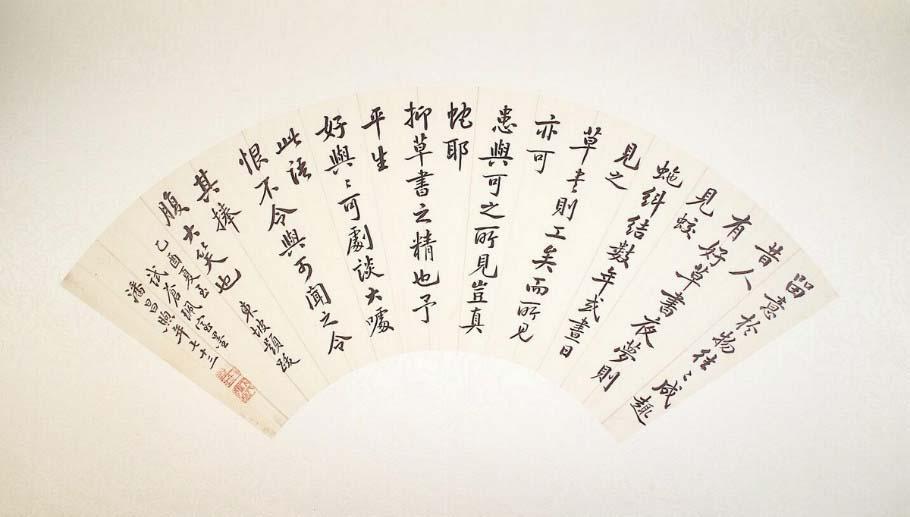 留意於物往〻成趣
昔人
有好草書夜夢則
見蛟
虵糾結數年或晝日
見之
草書則工矣而所見
亦可
患與可之所見豈真
蛇耶
抑草書之精也予
平生
好與〻可劇談大噱
此語
恨不令與可聞之令
其捧
腹大笑也
東坡題跋
乙酉夏玉蒼珮墨
試
潘昌煦年七十三